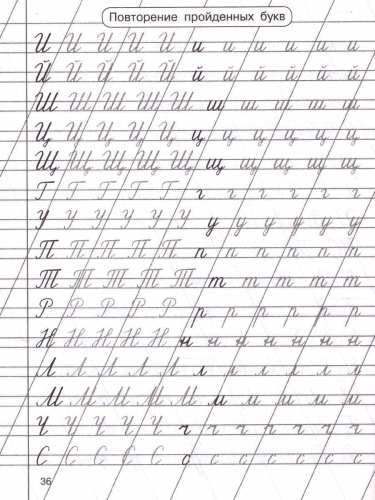 Повторение пройденных букв
И И И И И и и и и и и
Й Й Й Й Й й й й й й й
Ш Ш Ш Ш Ш ш ш ш ш ш
Ц Ц Ц Ц Ц ц ц ц ц ц ц
Щ Щ Щ Щ Щ щ щ щ щ щ
Г Г Г Г Г г г г г г г
У У У У У У у у у у у у
П П П П П п п п п п п
Т Т Т Т Т т т т т т
Р Р Р Р Р р р р р р р
Н Н Н Н Н н н н н н н н
Л Л Л Л Л л л л л л л
М М М М М м м м м м
Ч Ч Ч Ч Ч ч ч ч ч ч ч ч
С С С С С С с с с с с с
36